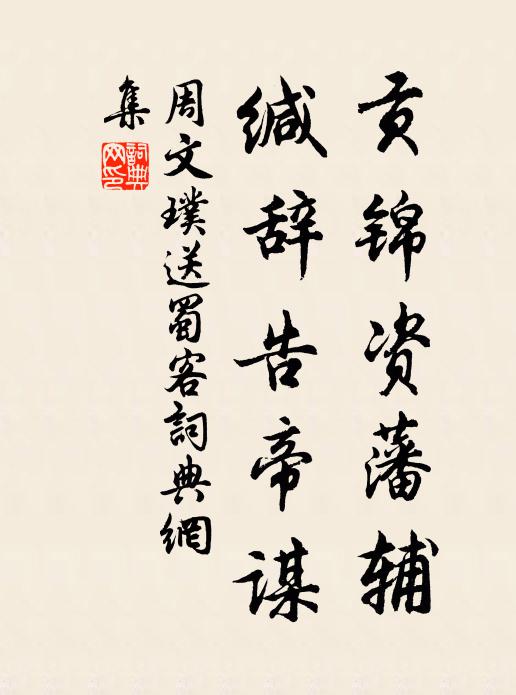 贡锦资藩辅
缄辞告帝谋
周文璞送蜀客詞典網
集
詞典
网印